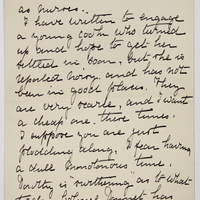 as nurses..
I have written to engage
a young cook who turned
up and hope to get her
settled in soon, but she is
reported and has not
been in good places. They
are very scarce, and I want
a cheap one these times.
I suppose you are just
plodding along, I fear having
a dull monotonous time.
is as to what
has